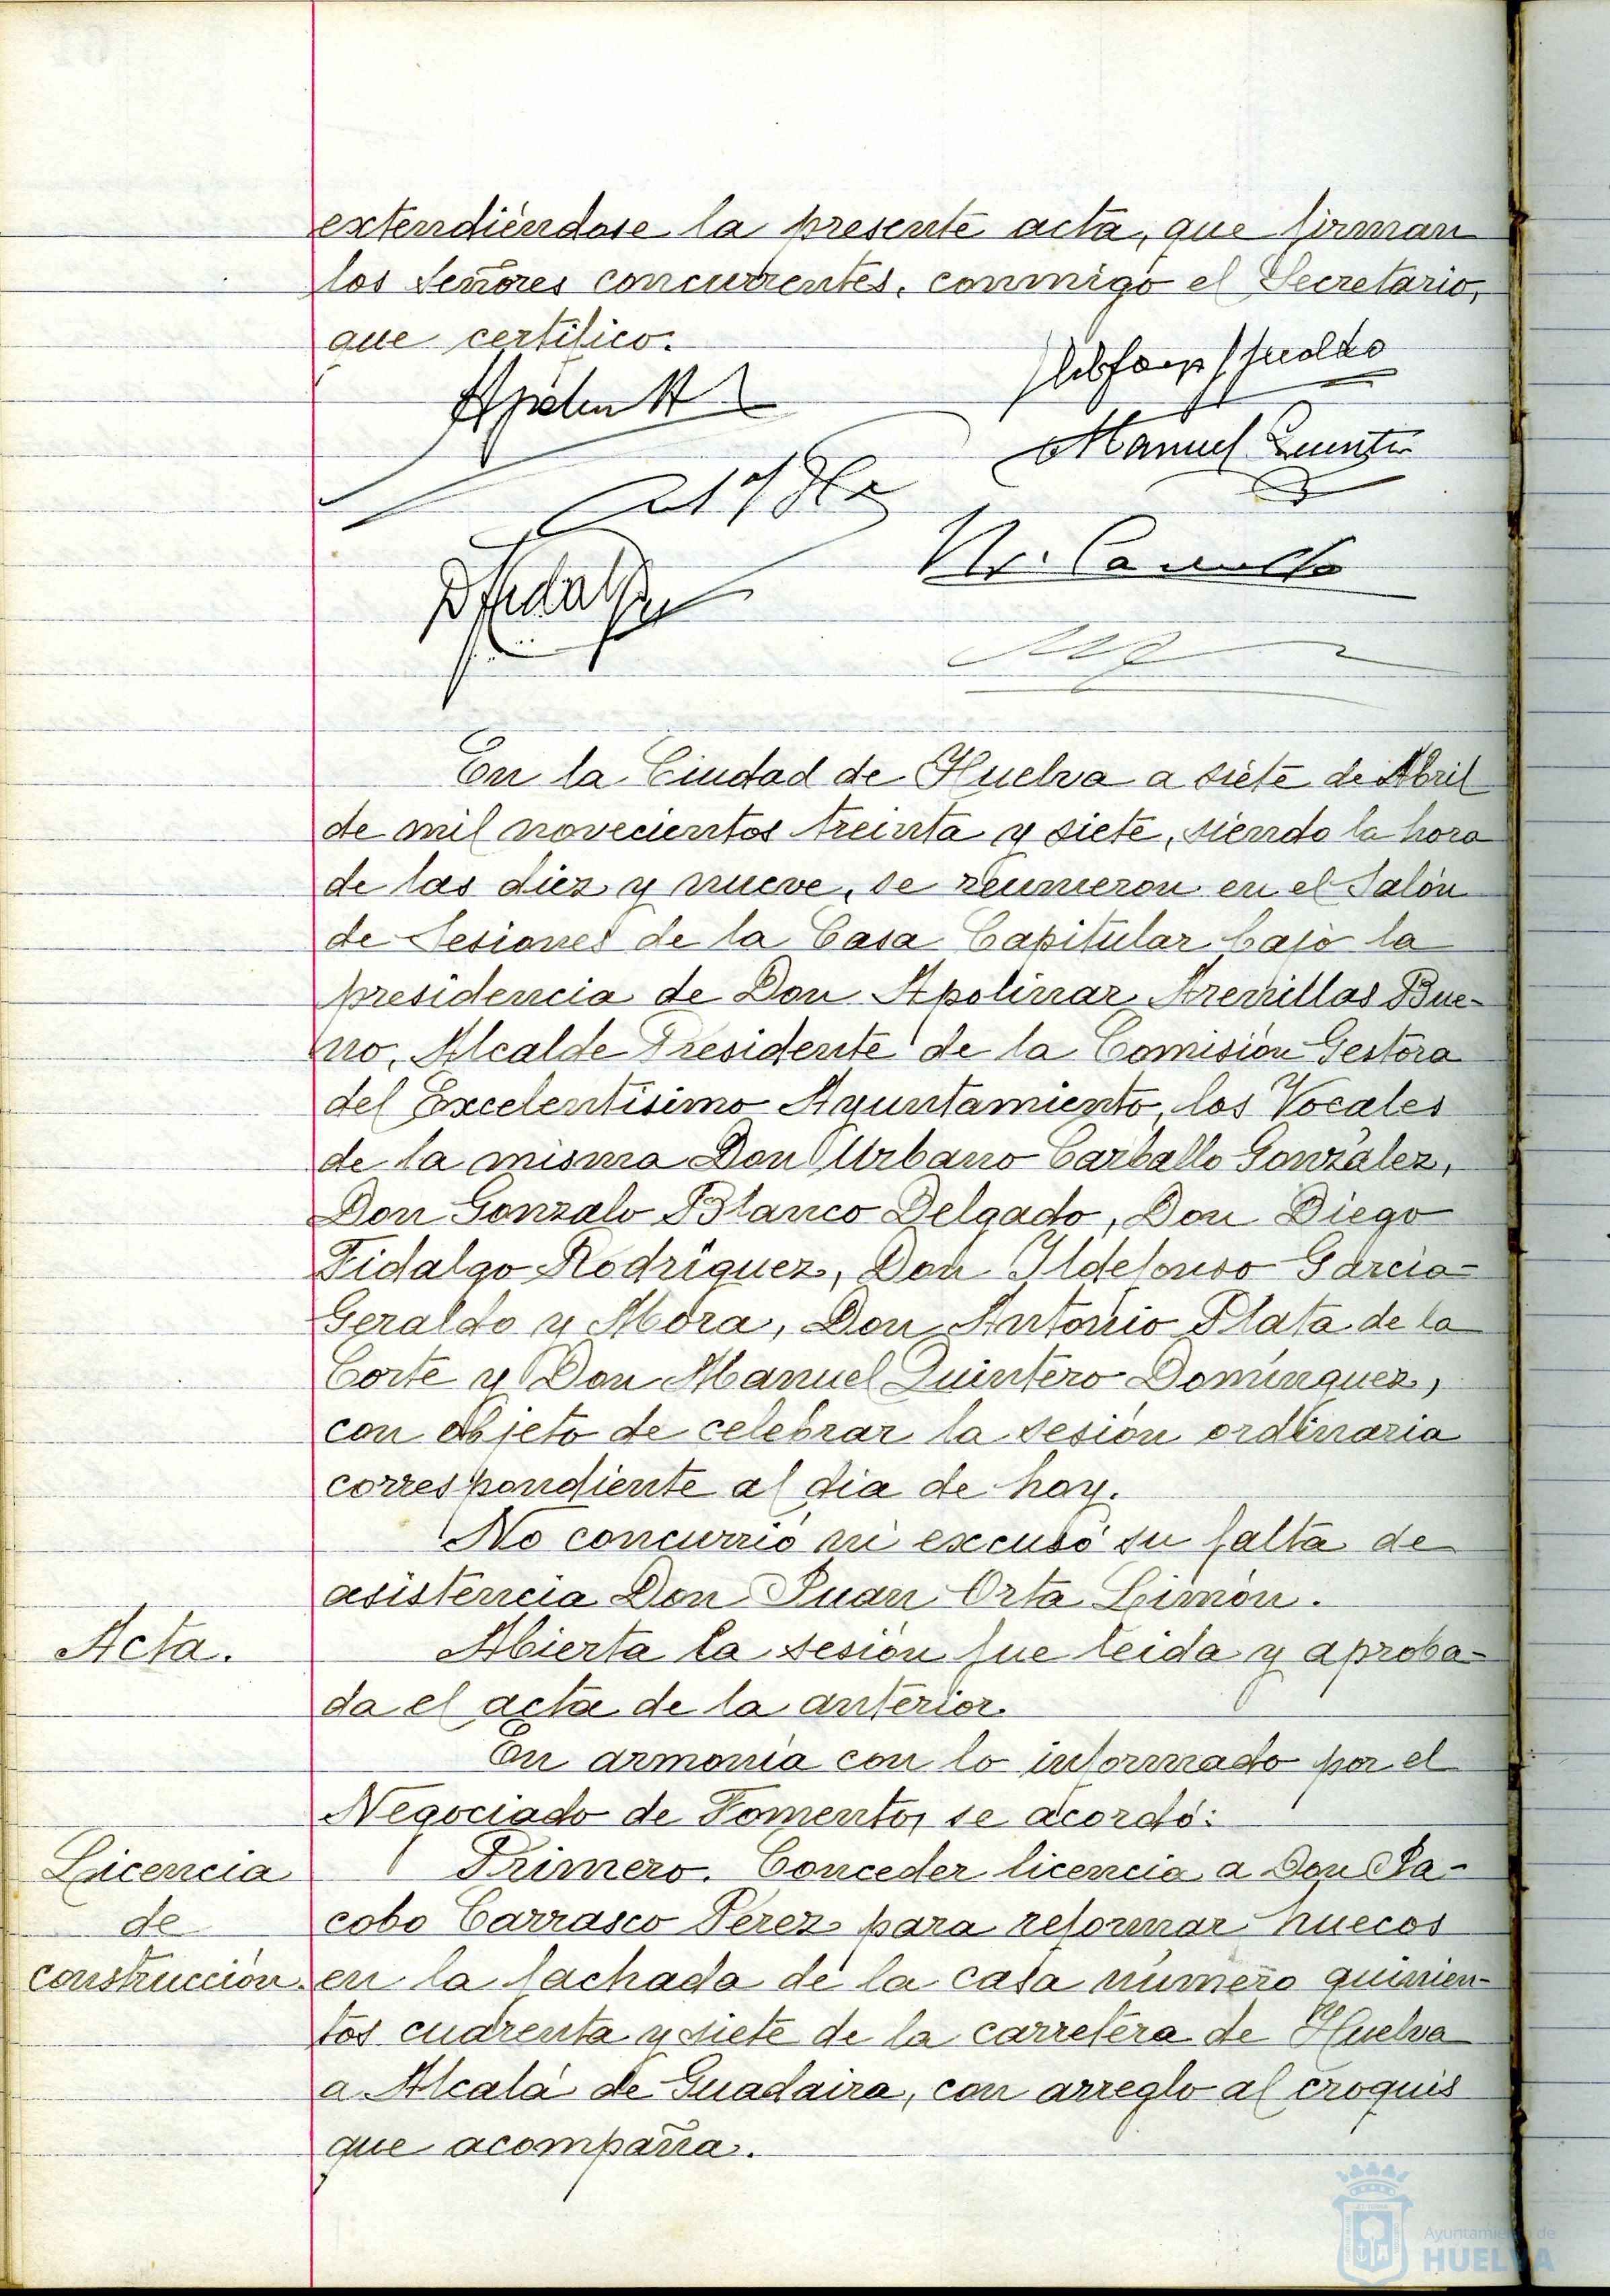 extendiéndose la presente acta, que firman
los Señores concurrentes, conmigo el Secretario,
que certifico.
Manuel Quintero
En la Ciudad de Huelva a siete de Abril
de mil novecientos treinta y siete, siendo la hora
de las diez y nueve, se reunieron en el Salón
de Sesiones de la Casa Capitular bajo la
presidencia de Don Apolinar Arenillas Bue-
no, Alcalde Presidente de la Comisión Gestora
del Excelentísimo Ayuntamiento, los Vocales
de la misma Don Urbano Carballo González,
Don Gonzalo Blanco Delgado, Don Diego
Fidalgo Rodríguez, Don Ildefonso Garcia-
Geraldo y Mora, Don Antonio Plata de la
Corte y Don Manuel Quintero Domínguez,
con objeto de celebrar la sesión ordinaria
correspondiente al dia de hoy.
No concurrió ni excusó su falta de
asistencia Don Juan Orta Limón.
Acta.
Abierta la sesión fue leida y aproba-
da el acta de la anterior.
En armonía con lo informado por el
Negociado de Fomento, se acordó:
Licencia
de
construcción.
Primero. Conceder licencia a Don Ja-
cobo Carrasco Perez para reformar huecos
en la fachada de la casa número quinien-
tos cuarenta y siete de la carretera de Huelva
a Alcalá de Guadaira, con arreglo al croquis
que acompaña.
Ayuntamiento de
HUELVA